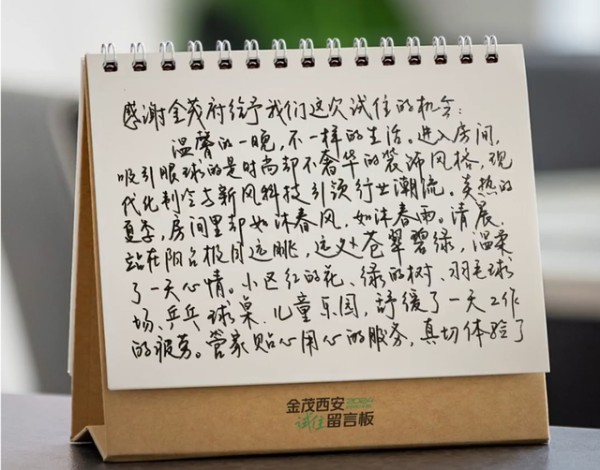 感谢金茂府给予我们这次试住的机会:
温馨的一晚,不一样的生活。进入房间,
吸引眼球的是时尚却不奢华的装饰风格,现
代化制冷与新风科技引领行业潮流。炎热的
夏季,房间里却如沐春风,如沐春雨。清晨,
站在阳台极目远眺,远处苍翠碧绿,温柔
了一天心情。小区红的花、绿的树、羽毛球
场、乒乓球桌、儿童乐园,舒缓了一天工作
的疲劳。管家贴心用心的服务,真切体验了
金茂西安
试住留言板